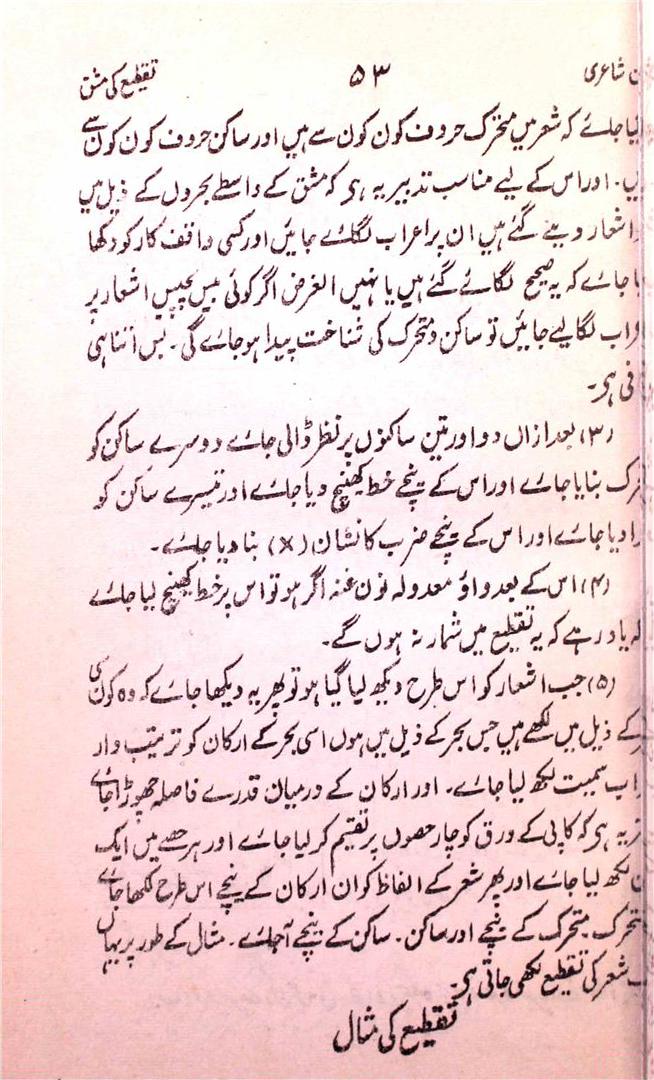 شاعری ۵۳ تقطیع کی مشق
لیا جائے کہ شعر میں متحرک حروف کون کون سے ہیں اور ساکن حروف کون کون سے
ہیں۔ اور اس کے لیے مناسب تدبیر یہ ہی کہ مشق کے واسطے بحروں کے ذیل میں
اشعار دیئے گئے ہیں ان پر اعراب لگائے جائیں اور کسی واقف کار کو دکھا
جائے کہ یہ صحیح لگائے گئے ہیں یا نہیں الغرض اگر کوئی بیس پچیس اشعار پر
اب لگا لیے جائیں تو ساکن و متحرک کی شناخت پیدا ہو جائے گی۔ بس اتنا ہی
فی ہی۔
(۳) بعد ازاں دو اور تین ساکنوں پر نظر ڈالی جائے دوسرے ساکن کو
رک بنایا جائے اور اس کے نیچے خط کھینچ دیا جائے اور تیسرے ساکن کو
ا دیا جائے اور اس کے نیچے ضرب کا نشان (×) بنا دیا جائے۔
(۴) اس کے بعد واؤ معدولہ نون غنہ اگر ہو تو اس پر خط کھینچ لیا جائے
یاد رہے کہ یہ تقطیع میں شمار نہ ہوں گے۔
(۵) جب اشعار کو اس طرح دیکھ لیا گیا ہو تو پھر یہ دیکھا جائے کہ وہ کون سی
کے ذیل میں لکھے ہیں جس بحر کے ذیل میں ہوں اسی بحر کے ارکان کو ترتیب وار
اب سمیت لکھ لیا جائے۔ اور ارکان کے درمیان قدرے فاصلہ چھوڑا جائے
یہ ہی کہ کاپی کے ورق کو چار حصوں پر تقسیم کر لیا جائے اور ہر حصے میں ایک
ن لکھ لیا جائے اور پھر شعر کے الفاظ کو ان ارکان کے نیچے اس طرح لکھا جائے
متحرک۔ متحرک کے نیچے اور ساکن۔ ساکن کے نیچے آ جائے۔ مثال کے طور پر یہاں
شعر کی تقطیع لکھی جاتی ہی۔
تقطیع کی مثال